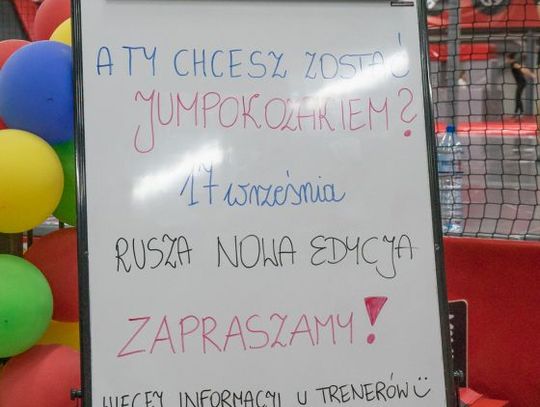 A TY CHCESZ ZOSTAĆ
JUMPOKOZAKIEM?
17 września
RUSZA NOWA EDYCJA
ZAPRASZAMY!
WIĘCEJ INFORMACJI U TRENERÓW